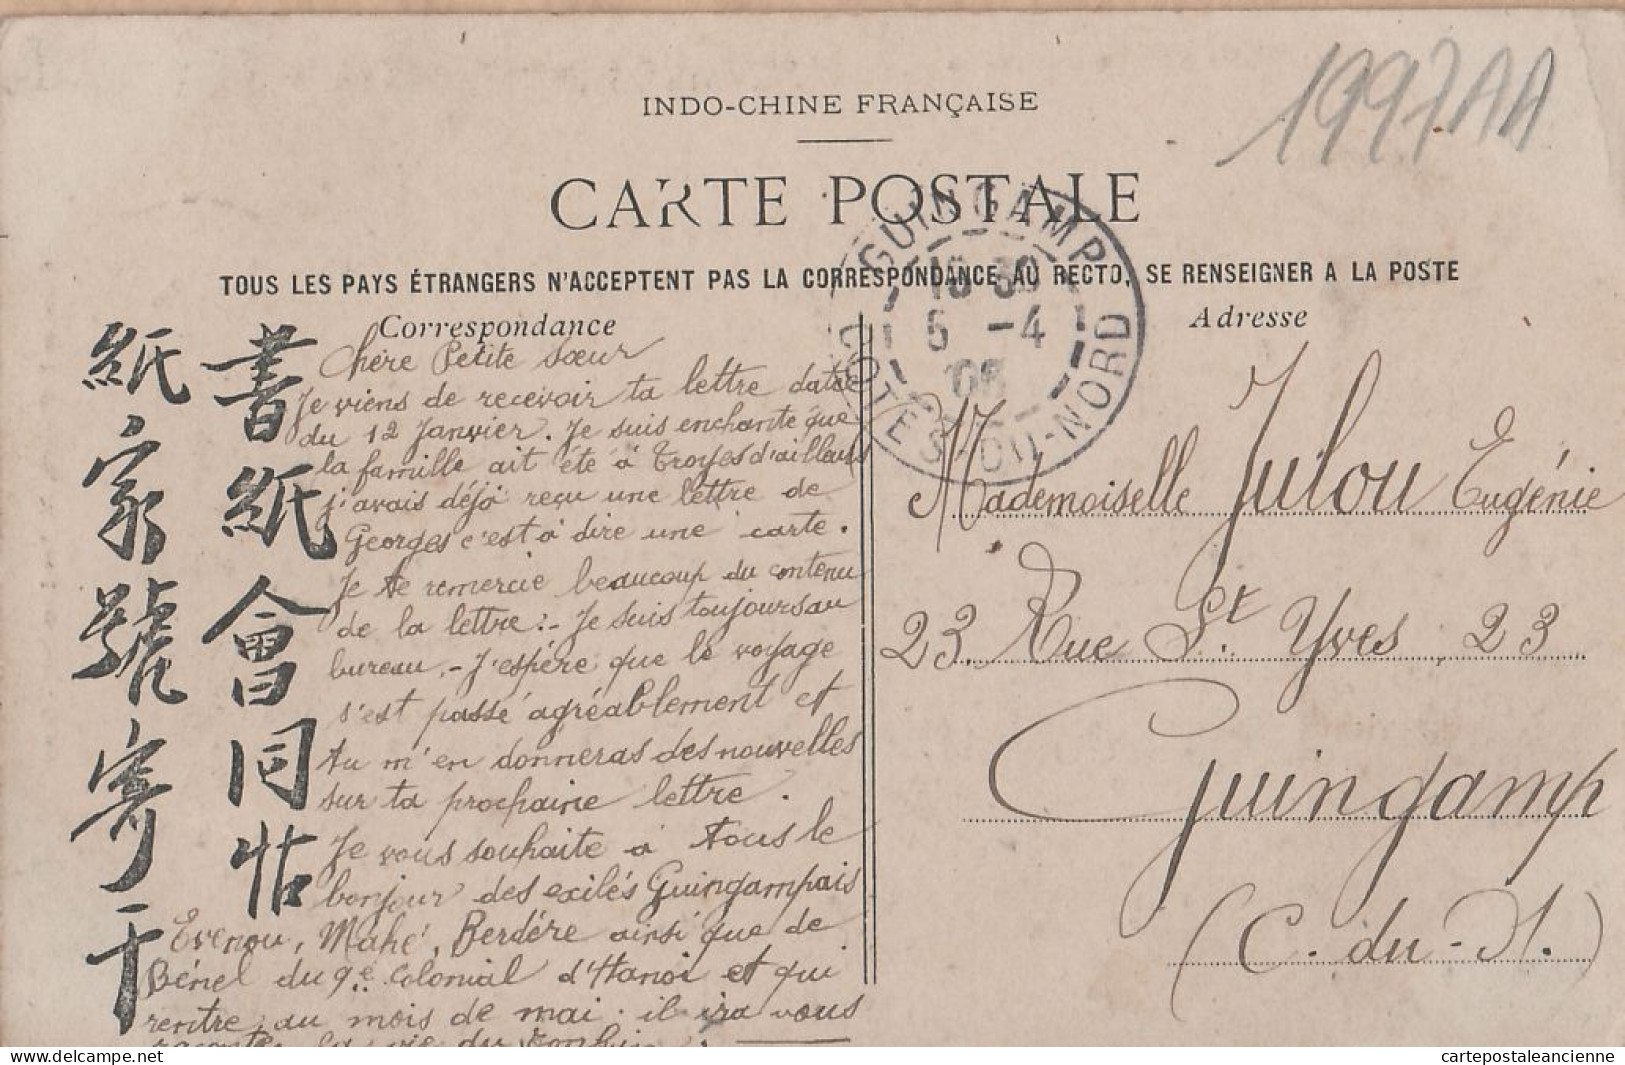 1997AA
INDO-CHINE FRANÇAISE
CARTE POSTALE
TOUS LES PAYS ÉTRANGERS N'ACCEPTENT PAS LA CORRESPONDANCE AU RECTO, SE RENSEIGNER A LA POSTE
GUINGAMP
5 -4
08
COTES-DU-NORD
Correspondance
Chère Petite Sœur
Je viens de recevoir ta lettre datée
du 12 Janvier. Je suis enchanté que
la famille ait été à Troyes d'ailleurs
j'avais déjà reçu une lettre de
Georges c'est à dire une carte.
Je te remercie beaucoup du contenu
de la lettre :- Je suis toujours au
bureau. - J'espère que le voyage
s'est passé agréablement et
tu m'en donneras des nouvelles
sur ta prochaine lettre.
Je vous souhaite à tous le
bonjour des exilés Guingampais
Evenou, Mahé, Berdére ainsi que de
Bénel du 9e Colonial d'Hanoi et qui
rentre au mois de mai. il ira vous
la vie du Tonkin.
書紙會同
紙家號寄于
Adresse
Mademoiselle Julou Eugénie
23. Rue St. Yves, 23
Guingamp
(C.-du-N.)
delcampe.net
cartepostaleancienne